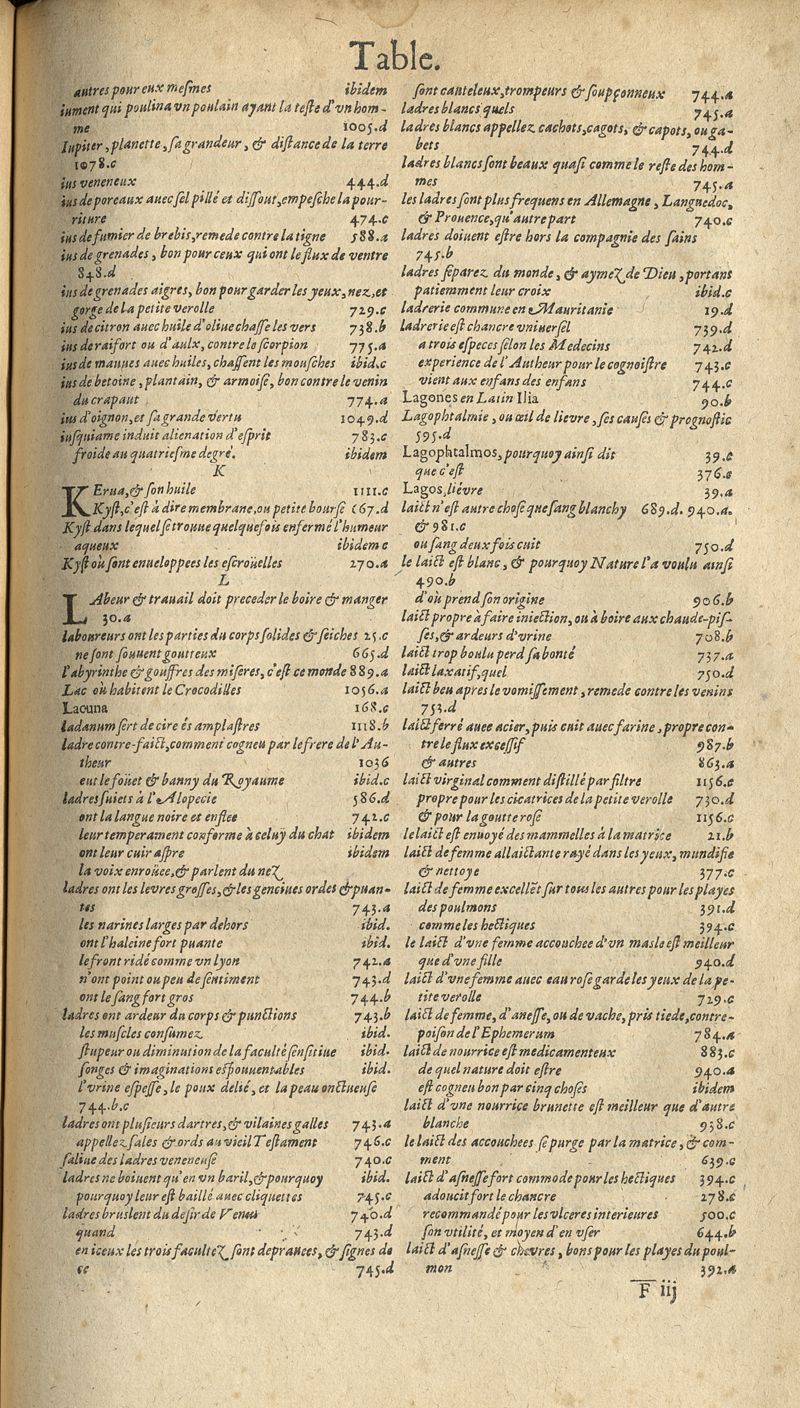 Table.
autres pour eux mesmes ibidem
iument qui poulina vn poulain ayant la teste d'vn hom-
me 1005.d
Iupiter, planette, sa grandeur, & distance de la terre
1078.c
ius veneneux 444.d
ius de poreaux auec sel pillé et dissout, empesche la pour-
riture 474.c
ius de fumier de brebis, remede contre la tigne 588.a
ius de grenades, bon pour ceux qui ont le flux de ventre
848.d
ius de grenades aigres, bon pour garder les yeux, nez, et
gorge de la petite verolle 729.c
ius de citron auec huile d'oliue chasse les vers 738.b
ius de raifort ou d'aulx, contre le scorpion 775.a
ius de mauues auec huiles, chassent les mousches ibid.c
ius de betoine, plantain, & armoise, bon contre le venin
du crapaut 774.a
ius d'oignon, et sa grande vertu 1049.d
iusquiame induit alienation d'esprit 783.c
froide au quatriesme degré. ibidem
K
KErua, & son huile 1111.c
Kyst, c'est à dire membrane, ou petite bourse 167.d
Kyst dans lequel se trouue quelquefois enfermé l'humeur
aqueux ibidem c
Kyst où sont enueloppees les escroüelles 270.a
L
LAbeur & trauail doit preceder le boire & manger
30.a
laboureurs ont les parties du corps solides & seiches 25.c
ne sont souuent goutteux 665.d
l'abyrinthe & gouffres des miseres, c'est ce monde 889.a
Lac où habitent le Crocodilles 1056.a
Lacuna 168.c
ladanum sert de cire és amplastres 1118.b
ladre contre-faict, comment cogneu par le frere de l'Au-
theur 1036
eut le foüet & banny du Royaume ibid.c
ladres suiets à l'Alopecie 586.d
ont la langue noire et enflee 742.c
leur temperament conforme à celuy du chat ibidem
ont leur cuir aspre ibidem
la voix enroüee, & parlent du nez
ladres ont les levres grosses, & les genciues ordes & puan-
tes 743.a
les narines larges par dehors ibid.
ont l'haleine fort puante ibid.
le front ridé comme vn lyon 742.a
n'ont point ou peu de sentiment 743.d
ont le sang fort gros 744.b
ladres ont ardeur du corps & punctions 743.b
les muscles consumez ibid.
stupeur ou diminution de la faculté sensitiue ibid.
songes & imaginations espouuentables ibid.
l'vrine espesse, le poux delié, et la peau onctueuse
744.b.c
ladres ont plusieurs dartres, & vilaines galles 743.a
appellez sales & ords au vieil Testament 746.c
saliue des ladres veneneuse 740.c
ladres ne boiuent qu'en vn baril, & pourquoy ibid.
pourquoy leur est baillé auec cliquettes 745.c
ladres bruslent du desir de Venus 740.d
quand 743.d
en iceux les trois facultez sont deprauees, & signes de
ce 745.d
sont cauteleux, trompeurs & soupçonneux 744.a
ladres blancs quels 745.a
ladres blancs appellez cachots, cagots, & capots, ou ga-
bets 744.d
ladres blancs sont beaux quasi comme le reste des hom-
mes 745.a
les ladres sont plus frequens en Allemagne, Languedoc,
& Prouence, qu'autre part 740.c
ladres doiuent estre hors la compagnie des sains
745.b
ladres separez du monde, & aymez de Dieu, portant
patiemment leur croix ibid.c
ladrerie commune en Mauritanie 19.d
ladrerie est chancre vniuersel 739.d
a trois especes selon les Medecins 742.d
experience de l'Autheur pour le cognoistre 743.c
vient aux enfans des enfans 744.c
Lagones en Latin Ilia 90.b
Lagophtalmie, ou œil de lievre, ses causes & prognostic
595.d
Lagophtalmos, pourquoy ainsi dit 39.c
que c'est 376.e
Lagos, liévre 39.a
laict n'est autre chose que sang blanchy 689.d. 940.a.
& 981.c
ou sang deux fois cuit 750.d
le laict est blanc, & pourquoy Nature l'a voulu ainsi
490.b
d'où prend son origine 906.b
laict propre à faire iniection, ou à boire aux chaude-pis-
ses, & ardeurs d'vrine 708.b
laict trop boulu perd sa bonté 737.a
laict laxatif, quel 750.d
laict beu apres le vomissement, remede contre les venins
753.d
laict ferré auec acier, puis cuit auec farine, propre con-
tre le flux excessif 987.b
& autres 863.a
laict virginal comment distillé par filtre 1156.e
propre pour les cicatrices de la petite verolle 730.d
& pour la goutte rose 1156.c
le laict est enuoyé des mammelles à la matrice 21.b
laict de femme allaictante rayé dans les yeux, mundifie
& nettoye 377.c
laict de femme excellēt sur tous les autres pour les playes
des poulmons 391.d
comme les hectiques 394.c
le laict d'vne femme accouchee d'vn masle est meilleur
que d'vne fille 940.d
laict d'vne femme auec eau rose garde les yeux de la pe-
tite verolle 729.c
laict de femme, d'anesse, ou de vache, pris tiede, contre-
poison de l'Ephemerum 784.a
laict de nourrice est medicamenteux 883.c
de quel nature doit estre 940.a
est cogneu bon par cinq choses ibidem
laict d'vne nourrice brunette est meilleur que d'autre
blanche 938.c
le laict des accouchees se purge par la matrice, & com-
ment 639.c
laict d'asnesse fort commode pour les hectiques 394.c
adoucit fort le chancre 278.c
recommandé pour les vlceres interieures 500.c
son vtilité, et moyen d'en vser 644.b
laict d'asnesse & chevres, bons pour les playes du poul-
mon 392.a
F iij